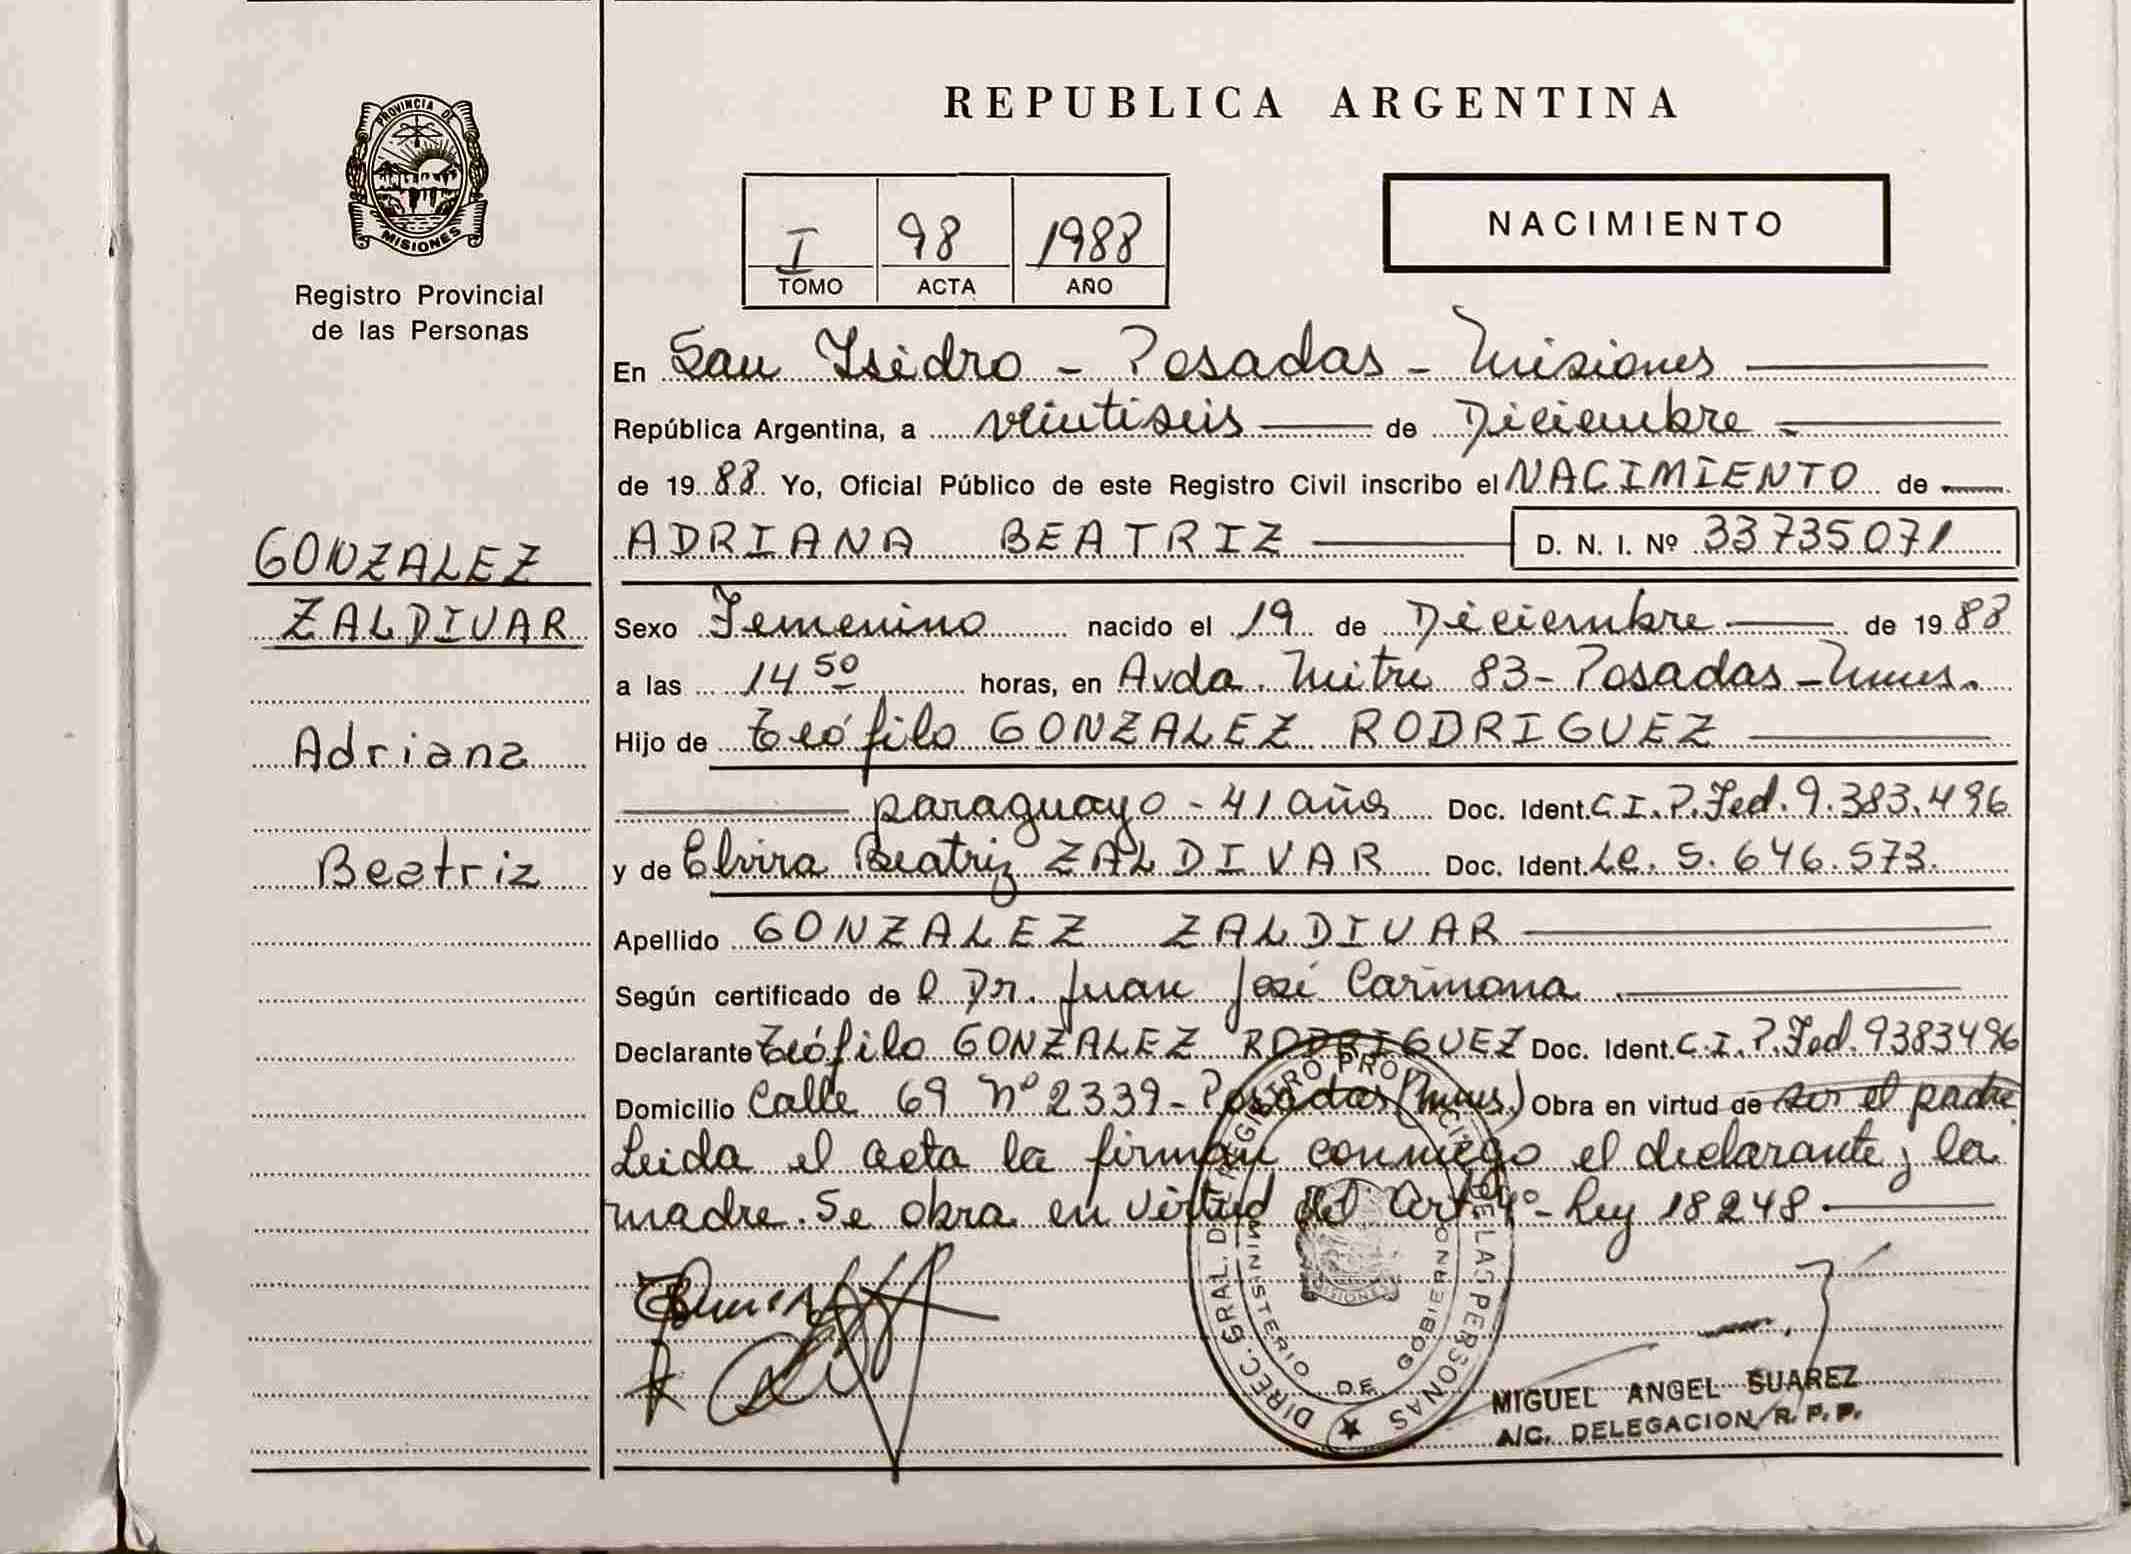 PROVINCIA DE
MISIONES
Registro Provincial
de las Personas
GONZALEZ
ZALDIVAR
Adriana
Beatriz
REPUBLICA ARGENTINA
I 98 1988
TOMO ACTA AÑO
NACIMIENTO
En San Isidro - Posadas - Misiones
República Argentina, a veintiseis de Diciembre
de 1988 Yo, Oficial Público de este Registro Civil inscribo el NACIMIENTO de
ADRIANA BEATRIZ D. N. I. Nº 33735071
Sexo Femenino nacido el 19 de Diciembre de 1988
a las 14 50 horas, en Avda. Mitre 83 - Posadas - Mnes.
Hijo de Teófilo GONZALEZ RODRIGUEZ
paraguayo - 41 años Doc. Ident. C.I.P.Fed. 9.383.496
y de Elvira Beatriz ZALDIVAR Doc. Ident. L.C. 5.646.573.
Apellido GONZALEZ ZALDIVAR
Según certificado de l Dr. Juan José Carmona
Declarante Teófilo GONZALEZ RODRIGUEZ Doc. Ident. C.I.P.Fed. 9383496
Domicilio Calle 69 Nº 2339 - Posadas (Mnes.) Obra en virtud de ser el padre
Leida el acta la firman conmigo el declarante y la
madre. Se obra en virtud del Art. 4º - Ley 18248
DIREC. GRAL. DEL REGISTRO PROVINCIAL DE LAS PERSONAS
MINISTERIO DE GOBIERNO
MISIONES
MIGUEL ANGEL SUAREZ
A/C. DELEGACION R. P. P.